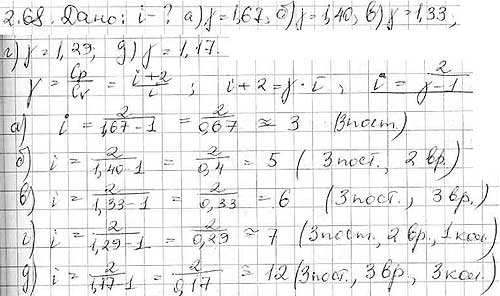 2.68. Дано: i - ? а) γ = 1,67, б) γ = 1,40, в) γ = 1,33,
г) γ = 1,29, д) γ = 1,17.
γ = Cp/Cv = (i+2)/i ; i + 2 = γ · i , i = 2/(γ-1)
а) i = 2/(1,67-1) = 2/0,67 ≈ 3 (3 пост.)
б) i = 2/(1,40-1) = 2/0,4 = 5 (3 пост., 2 вр.)
в) i = 2/(1,33-1) = 2/0,33 = 6 (3 пост., 3 вр.)
г) i = 2/(1,29-1) = 2/0,29 ≈ 7 (3 пост, 2 вр., 1 кол.)
д) i = 2/(1,17-1) = 2/0,17 ≈ 12 (3 пост., 3 вр., 3 кол.)